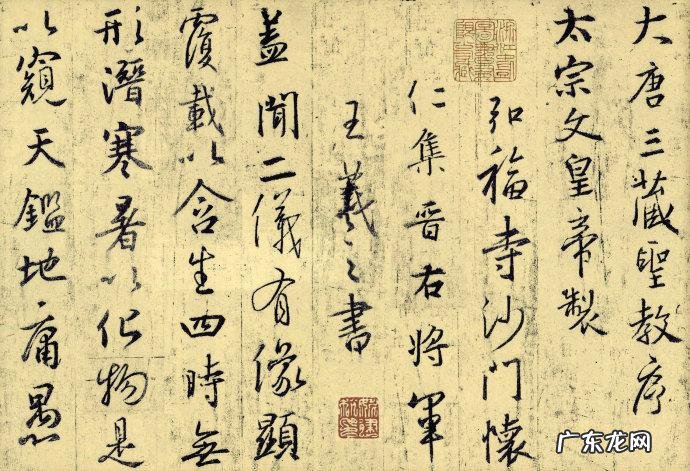 大唐三藏聖教序
太宗文皇帝製
弘福寺沙门懷
仁集晋右將軍
王羲之書
盖聞二儀有像顯
覆載以含生四時無
形潛寒暑以化物是
以窺天鑑地庸愚
广东龙网